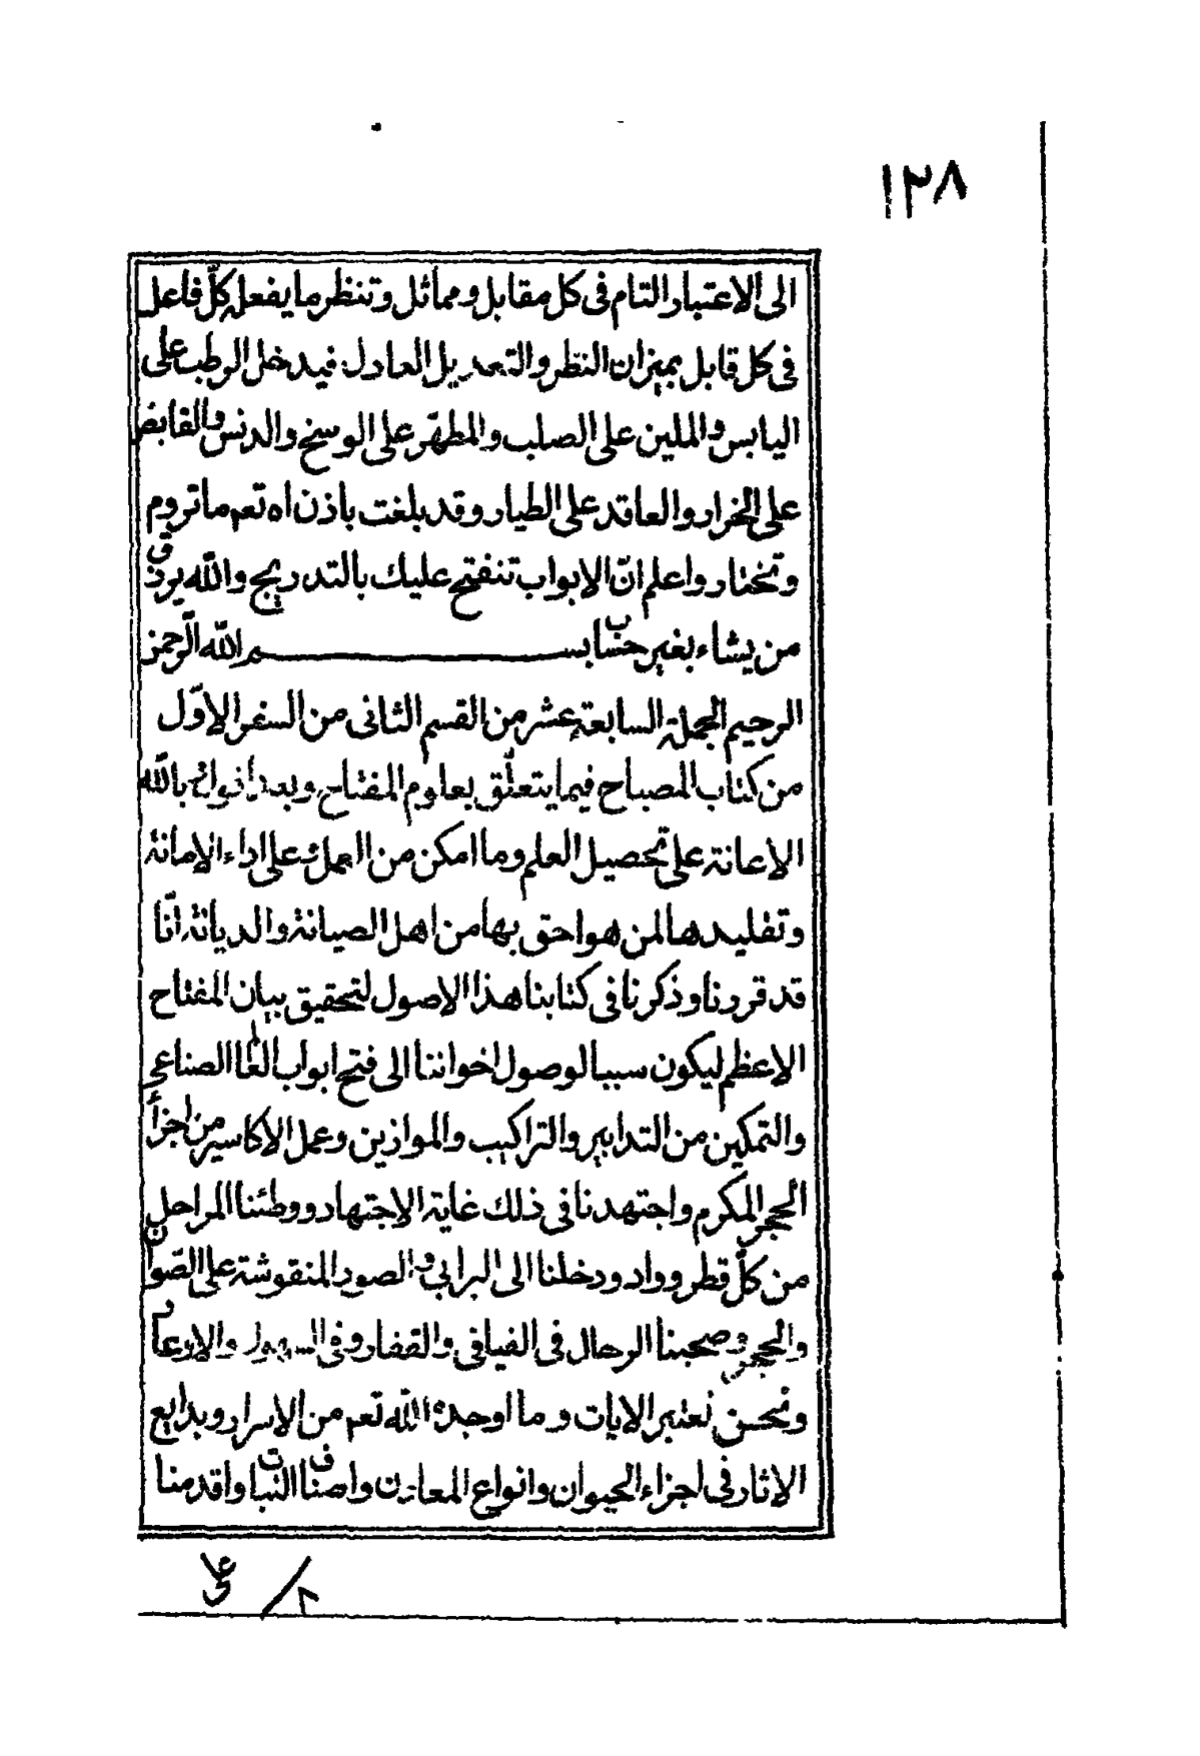 ١٢٨
الى الاعتبار التام فى كل مقابل ومماثل وتنظر ما يفعله كلّ فاعل
فى كل قابل بميزان النظر والتعديل العادل فيدخل الرطب على
اليابس والملين على الصلب والمطهّر على الوسخ والدنس والقابض
على الخرار والعاقد على الطيار وقد بلغت باذن اه تعم ما تروم
وتختار واعلم انّ الابواب تنفتح عليك بالتدريج والله يرزق
من يشاء بغير حساب بسم الله الرّحمن
الرحيم الجملة السابعة عشر من القسم الثانى من السفر الاوّل
من كتاب المصباح فيما يتعلّق بعلوم المفتاح وبعد بالله
الاعانة على تحصيل العلم وما امكن من العمل وعلى اداء الامانة
وتقليدها لمن هو احق بها من اهل الصيانة والديانة انّا
قد قررنا وذكرنا فى كتابنا هذا الاصول لتحقيق بيان المفتاح
الاعظم ليكون سببا لوصول اخواننا الى فتح ابواب العا الصناعى
والتمكين من التدابير والتراكيب والموازين وعمل الاكاسير من اجزأ
الحجر المكرم واجتهدنا فى ذلك غاية الاجتهاد ووطئنا المراحل
من كلّ قطر وواد ودخلنا الى البرابى والصور المنقوشة على الصّوان
والحجر وصحبنا الرحال فى الفيافى والقفار وفى السهول
ونحن نعتبر الايات وما اوجده الله تعم من الاسرار وبدايع
الاثار فى اجزاء الحيوان وانواع المعادن واصناف النبات واقدمنا
على